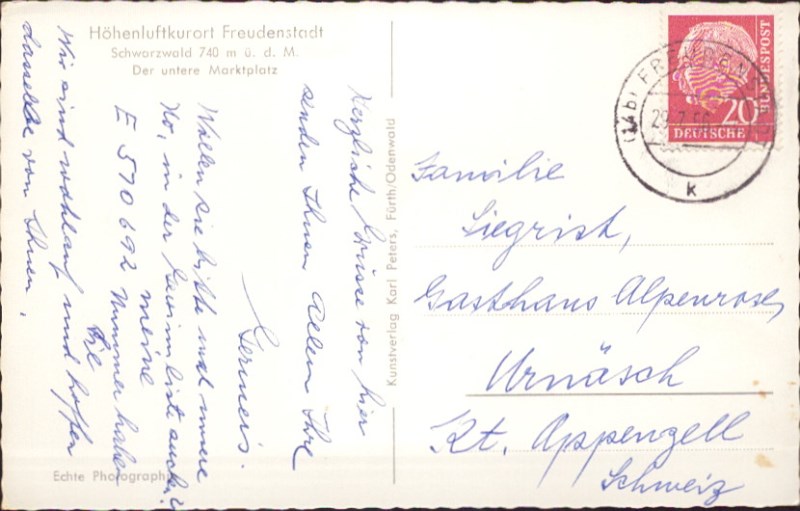 Höhenluftkurort Freudenstadt
Schwarzwald 740 m ü. d. M.
Der untere Marktplatz
Echte Photograph
Kunstverlag Karl Peters, Fürth/Odenwald
Herzliche Grüsse von hier
senden Ihnen Allen Ihre
Germers.
Wollen sie bitte mal unsere
No, in der Gewinnliste
E 570 692 Nummer haben
meine
Wir sind wohlauf und hoffen
dasselbe von Ihnen,
20
DEUTSCHE
BUNDESPOST
(14b) FREUDENST
29.7.56
k
Familie
Siegrist,
Gasthaus Alpenrose,
Urnäsch
Kt. Appenzell
Schweiz